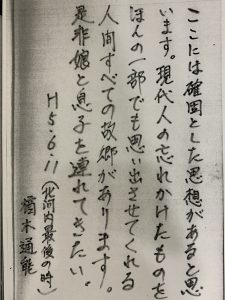 ここには確固とした思想があると思
います。現代人の忘れかけたものを
ほんの一部でも思い出させてくれる
人間すべての故郷があります。
是非娘と息子を連れてきたい。
H5.6.11(花河内最後の時)
木通能